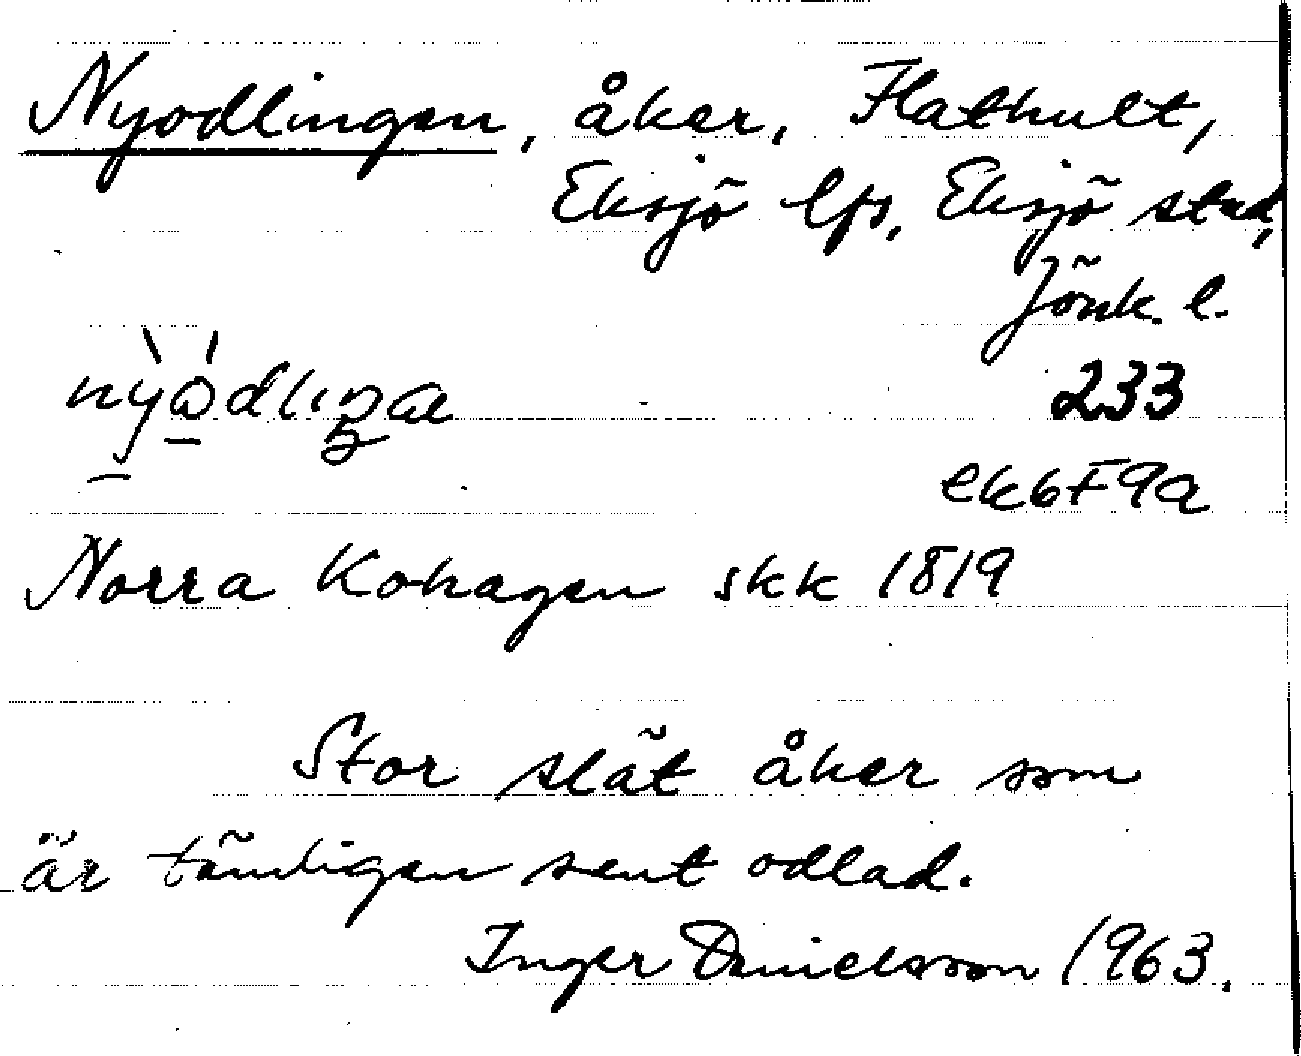 Nyodlingen, åker, Flathult,
Eksjö lfs, Eksjö stad,
Jönk. l.
233
ek6F9a
Norra Kohagen skk 1819
Stor slät åker som
är tämligen sent odlad.
Inger Danielsson 1963.